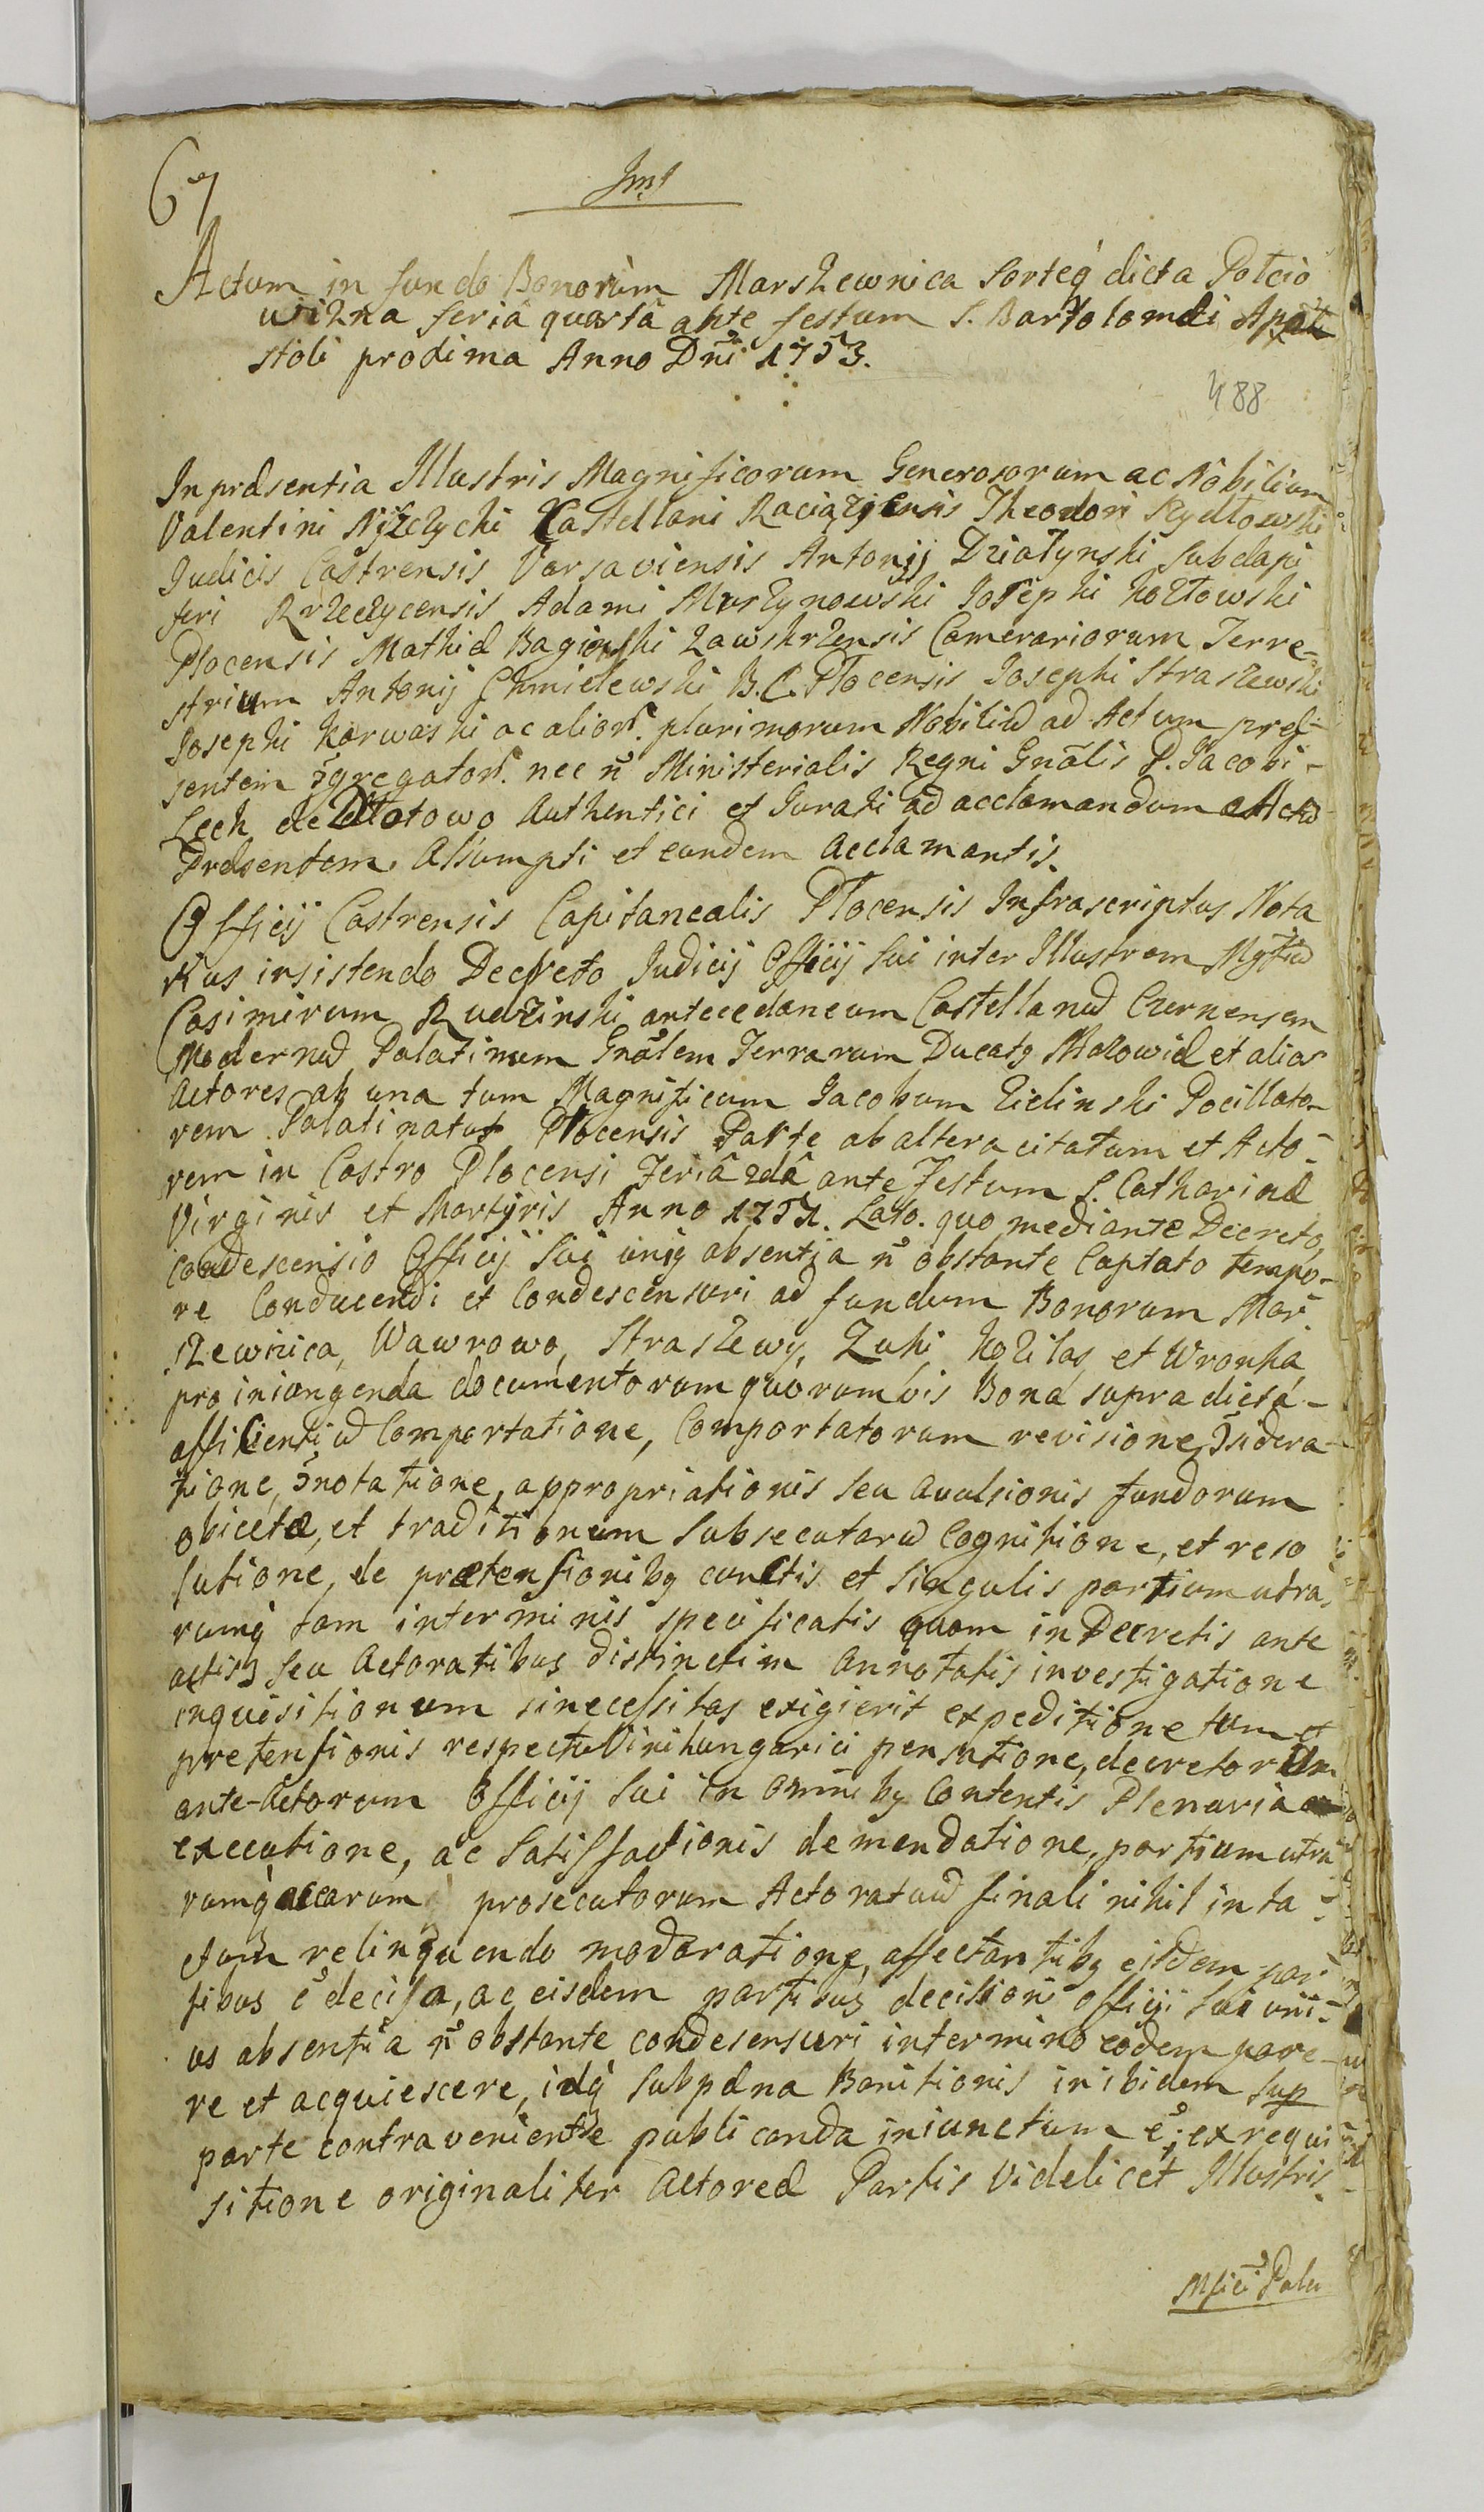 67
Jmt
Actum in fundo Bonorum Marszewnica Sorteq́ dicta Potcio
wizna feriâ quartâ ante festum S. Bartolomæi Apo
stoli proxima Anno Dn̄i 1753.
488
In præsentia Illustris Magnificorum Generosorum ac Nobilium
Valentini Niszczychi Castellani Raciążiensis Theodori Szydłowski
Judicis Castrensis Varsaviensis Antonij Działynski Subdapi
feri Rrzeczycensis Adami Murzynowski Josephi Kozłowski
Płocensis Mathiæ Baginski Zawskrzensis Camerariorum Terre-
strium Antonij Chmielewski B. C. Płocensis Josephi Straszewski
Josephi Karwaski ac alior. plurimorum Nobiliū ad Actum præ-
sentem ɔ̄gregator. nec n̄ Ministerialis Regni Gn̄alis P. Jacobi-
Lech de Złotowo Authentici et Jurati ad acclamandum Actū
Præsentem Assumpti et eundem Acclamantis.
Officij Castrensis Capitanealis Płocensis Infrascriptus Nota
rius insistendo Decreto Judicij Officij Sui inter Illustrem Mgficū
Casimirum Rudzinski antecedaneum Castellanū Czernensem
Modernū Palatinum Gn̄alem Terrarum Ducatq Mazowiæ et alios
Actores ab una tum Magnificum Jacobum Zielinski Pocillato-
rem Palatinatus Płocensis Parte ab altera citatum et Acto-
rem in Castro Plocensi Feriâ 2dâ ante Festum S. Catharinæ
Virginis et Martyris Anno 1751. Lato. quo mediante Decreto,
condescensio Officij Sui uniq absentia n̄ obstante Captato tempo-
re Conducendi et Condescensuri ad fundum Bonorum Mar-
szewnica, Wawrowo, Straszewy, Zuki, Kozilas, et Wronka
pro iniungenda documentorum quorumvis Bona supra dicta-
afficientiū Comportatione, Comportatorum revisione, ɔ̄sidera-
tione, ɔ̄notatione, appropriationis seu avulsionis fundorum
obiectæ, et traditionum Subsecutarū Cognitione, et reso
lutione, de prætensionibq cunctis et singulis partium utra,
rumq́ tam interminis specificatis quam in Decretis ante
actis, seu Actoratibus distinctim Annotatis investigatione
inquisitionum sinecessitas exigierit expeditione tum et
pretensionis respectu Vini hungarici pensatione, decretorum
ante-Actorum Officij Sui in omnibq Contentis Plenaria
executione, ac Satisfactionis demendatione, partium utra
rumq́ accarum prosecutorum Actoratuū finali nihil inta-
ctum relinquendo moderatione, affectantibq eisdem par-
tibus ē decisa, ac eisdem partibus decisioni officij sui uni-
us absentia n̄ obstante condescensuri intermino eodem pare-
re et acquiescere, idq́ Subpæna Banitionis in ibidem sup
parte contraveniente publicanda iniunctum ē; ex requi
sitione originaliter Actoreæ Partis Videlicet Illustris.
Mfici Pala